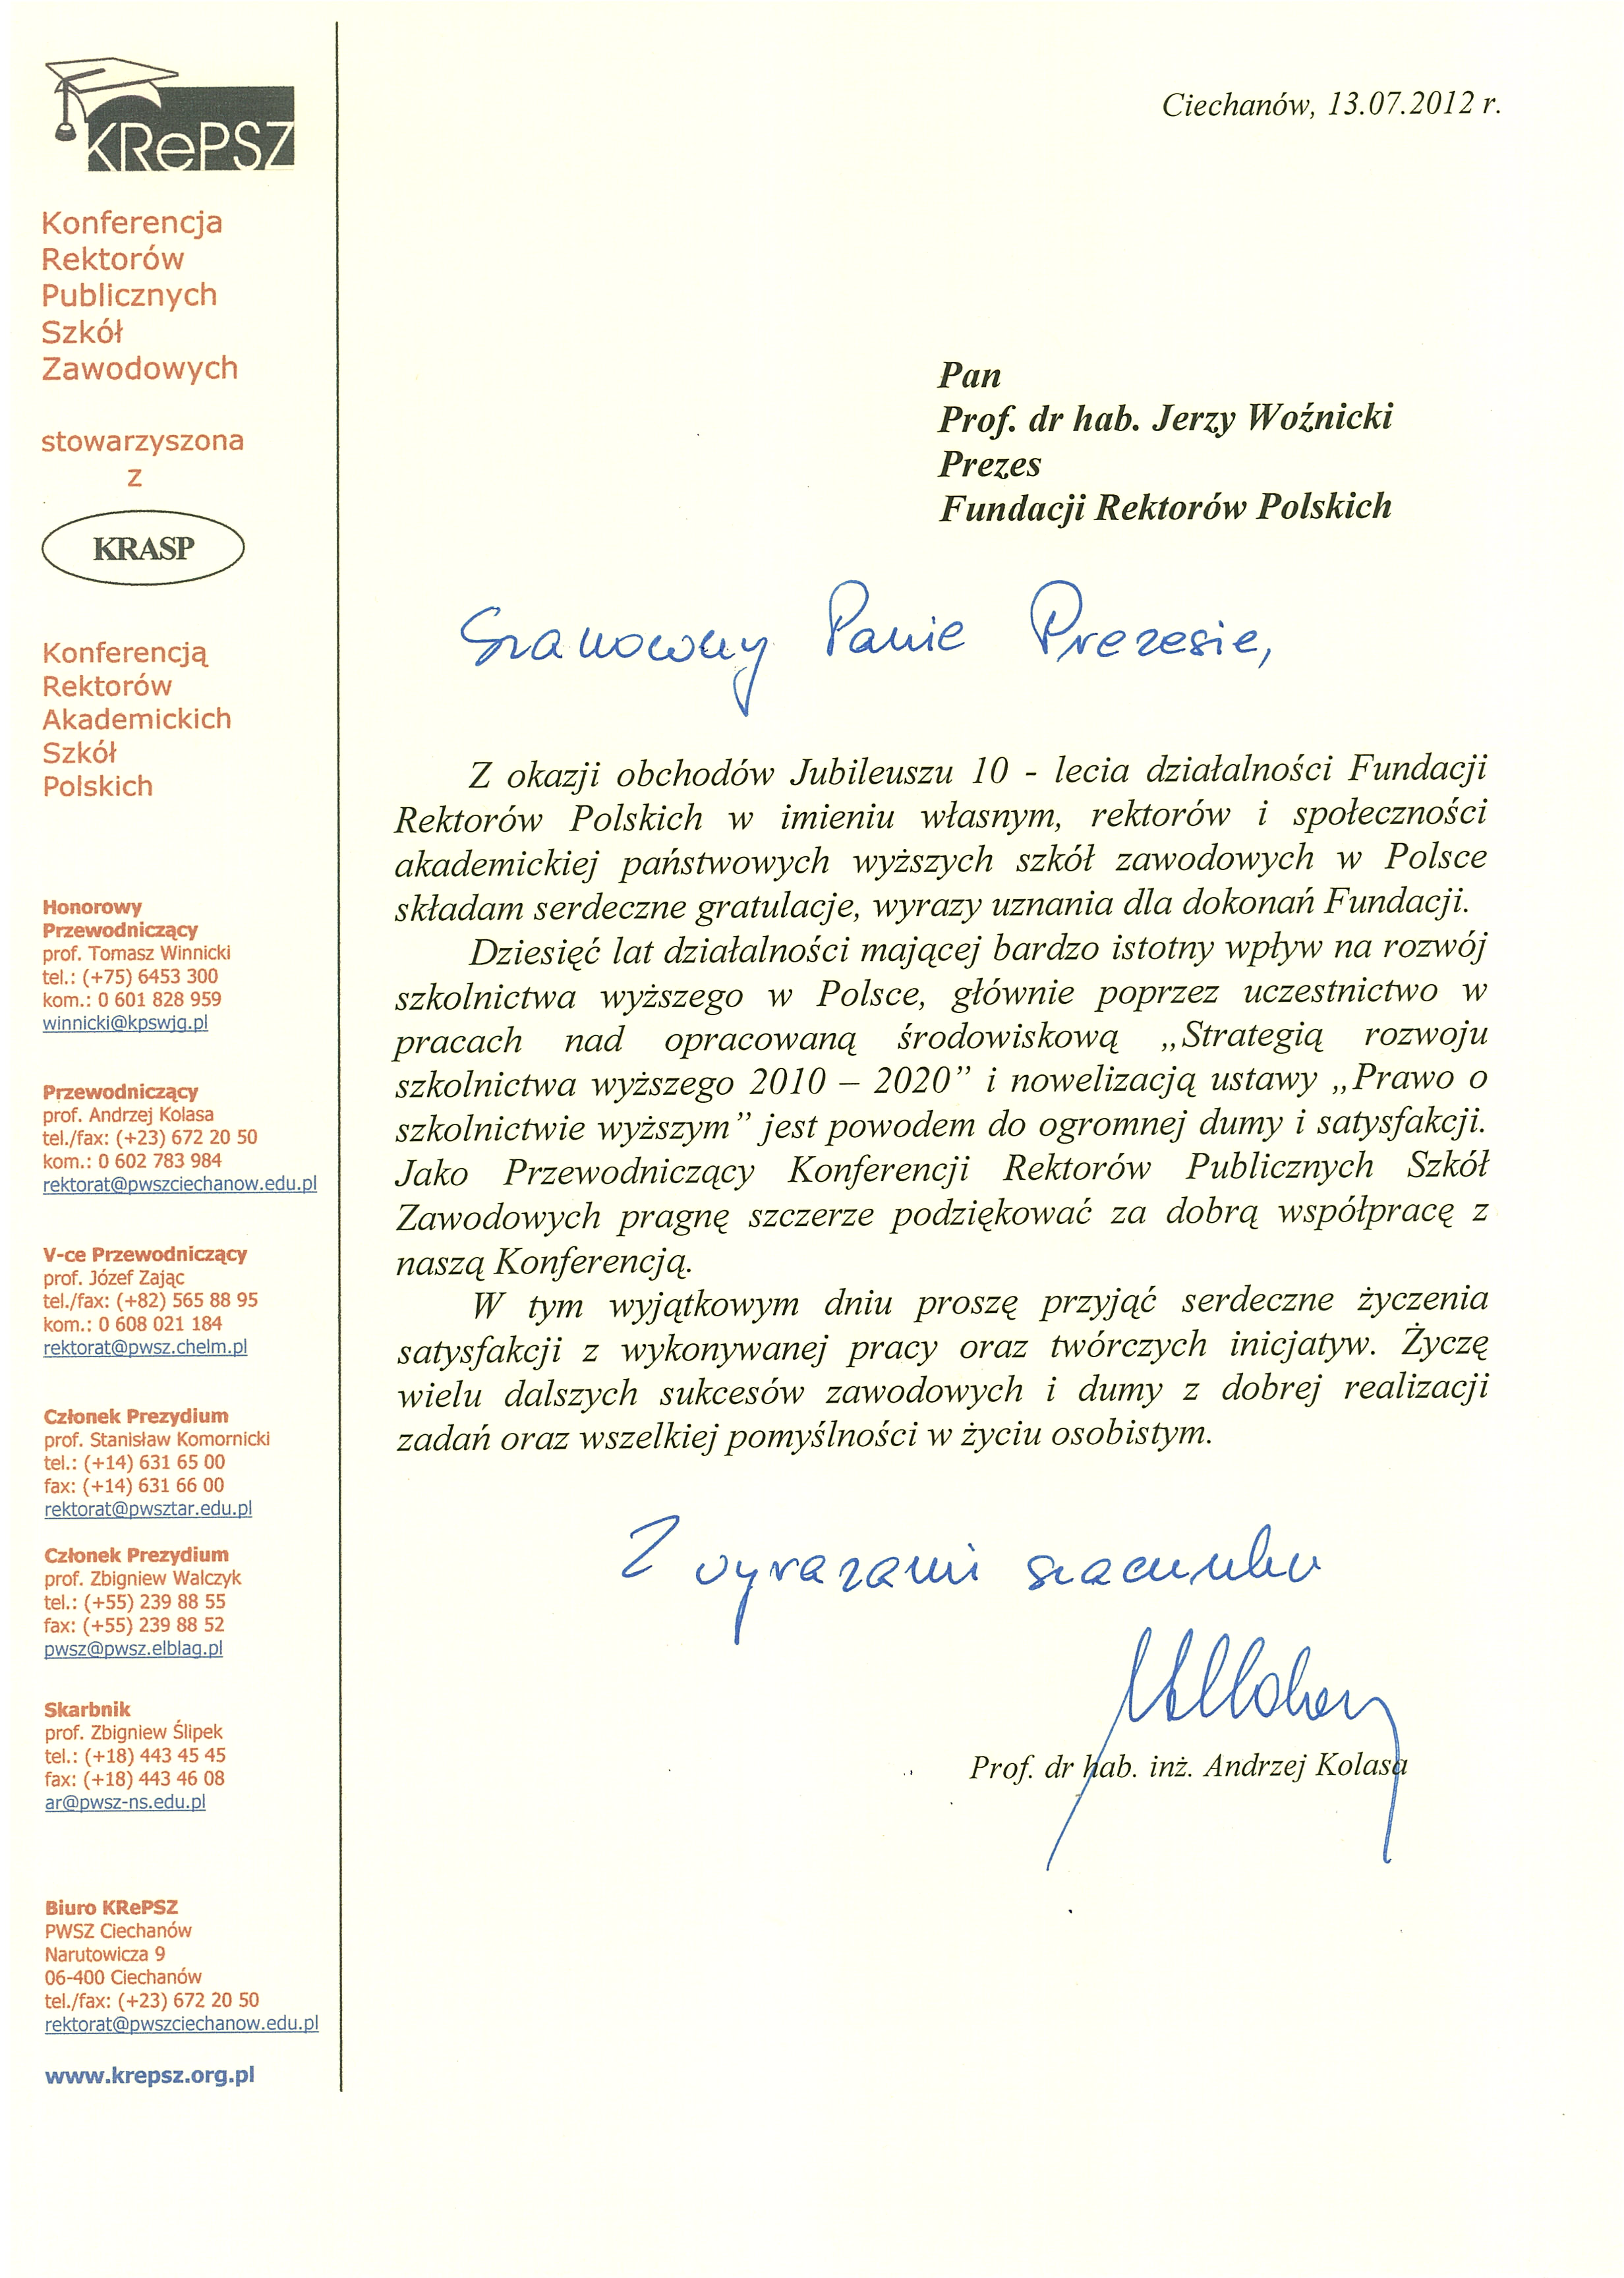 KRePSZ
Konferencja
Rektorów
Publicznych
Szkół
Zawodowych
stowarzyszona
z
KRASP
Konferencją
Rektorów
Akademickich
Szkół
Polskich
Honorowy
Przewodniczący
prof. Tomasz Winnicki
tel.: (+75) 6453 300
kom.: 0 601 828 959
winnicki@kpswjg.pl
Przewodniczący
prof. Andrzej Kolasa
tel./fax: (+23) 672 20 50
kom.: 0 602 783 984
rektorat@pwszciechanow.edu.pl
V-ce Przewodniczący
prof. Józef Zając
tel./fax: (+82) 565 88 95
kom.: 0 608 021 184
rektorat@pwsz.chelm.pl
Członek Prezydium
prof. Stanisław Komornicki
tel.: (+14) 631 65 00
fax: (+14) 631 66 00
rektorat@pwsztar.edu.pl
Członek Prezydium
prof. Zbigniew Walczyk
tel.: (+55) 239 88 55
fax: (+55) 239 88 52
pwsz@pwsz.elblag.pl
Skarbnik
prof. Zbigniew Ślipek
tel.: (+18) 443 45 45
fax: (+18) 443 46 08
ar@pwsz-ns.edu.pl
Biuro KRePSZ
PWSZ Ciechanów
Narutowicza 9
06-400 Ciechanów
tel./fax: (+23) 672 20 50
rektorat@pwszciechanow.edu.pl
www.krepsz.org.pl
Ciechanów, 13.07.2012 r.
Pan
Prof. dr hab. Jerzy Woźnicki
Prezes
Fundacji Rektorów Polskich
Szanowny Panie Prezesie,
Z okazji obchodów Jubileuszu 10 - lecia działalności Fundacji
Rektorów Polskich w imieniu własnym, rektorów i społeczności
akademickiej państwowych wyższych szkół zawodowych w Polsce
składam serdeczne gratulacje, wyrazy uznania dla dokonań Fundacji.
Dziesięć lat działalności mającej bardzo istotny wpływ na rozwój
szkolnictwa wyższego w Polsce, głównie poprzez uczestnictwo w
pracach nad opracowaną środowiskową „Strategią rozwoju
szkolnictwa wyższego 2010 – 2020” i nowelizacją ustawy „Prawo o
szkolnictwie wyższym” jest powodem do ogromnej dumy i satysfakcji.
Jako Przewodniczący Konferencji Rektorów Publicznych Szkół
Zawodowych pragnę szczerze podziękować za dobrą współpracę z
naszą Konferencją.
W tym wyjątkowym dniu proszę przyjąć serdeczne życzenia
satysfakcji z wykonywanej pracy oraz twórczych inicjatyw. Życzę
wielu dalszych sukcesów zawodowych i dumy z dobrej realizacji
zadań oraz wszelkiej pomyślności w życiu osobistym.
Z wyrazami szacunku
Prof. dr hab. inż. Andrzej Kolasa